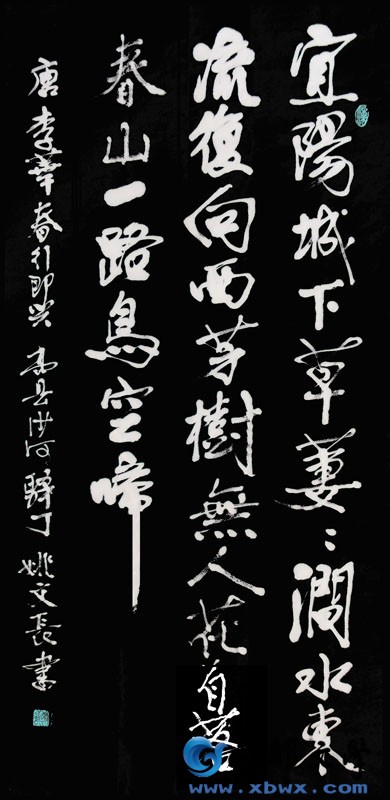 宜陽城下草萋〻澗水東
流復向西芳樹無人花自落
春山一路鳥空啼
唐李華春行即興 驛丁 姚文長書
www.xbwx.com